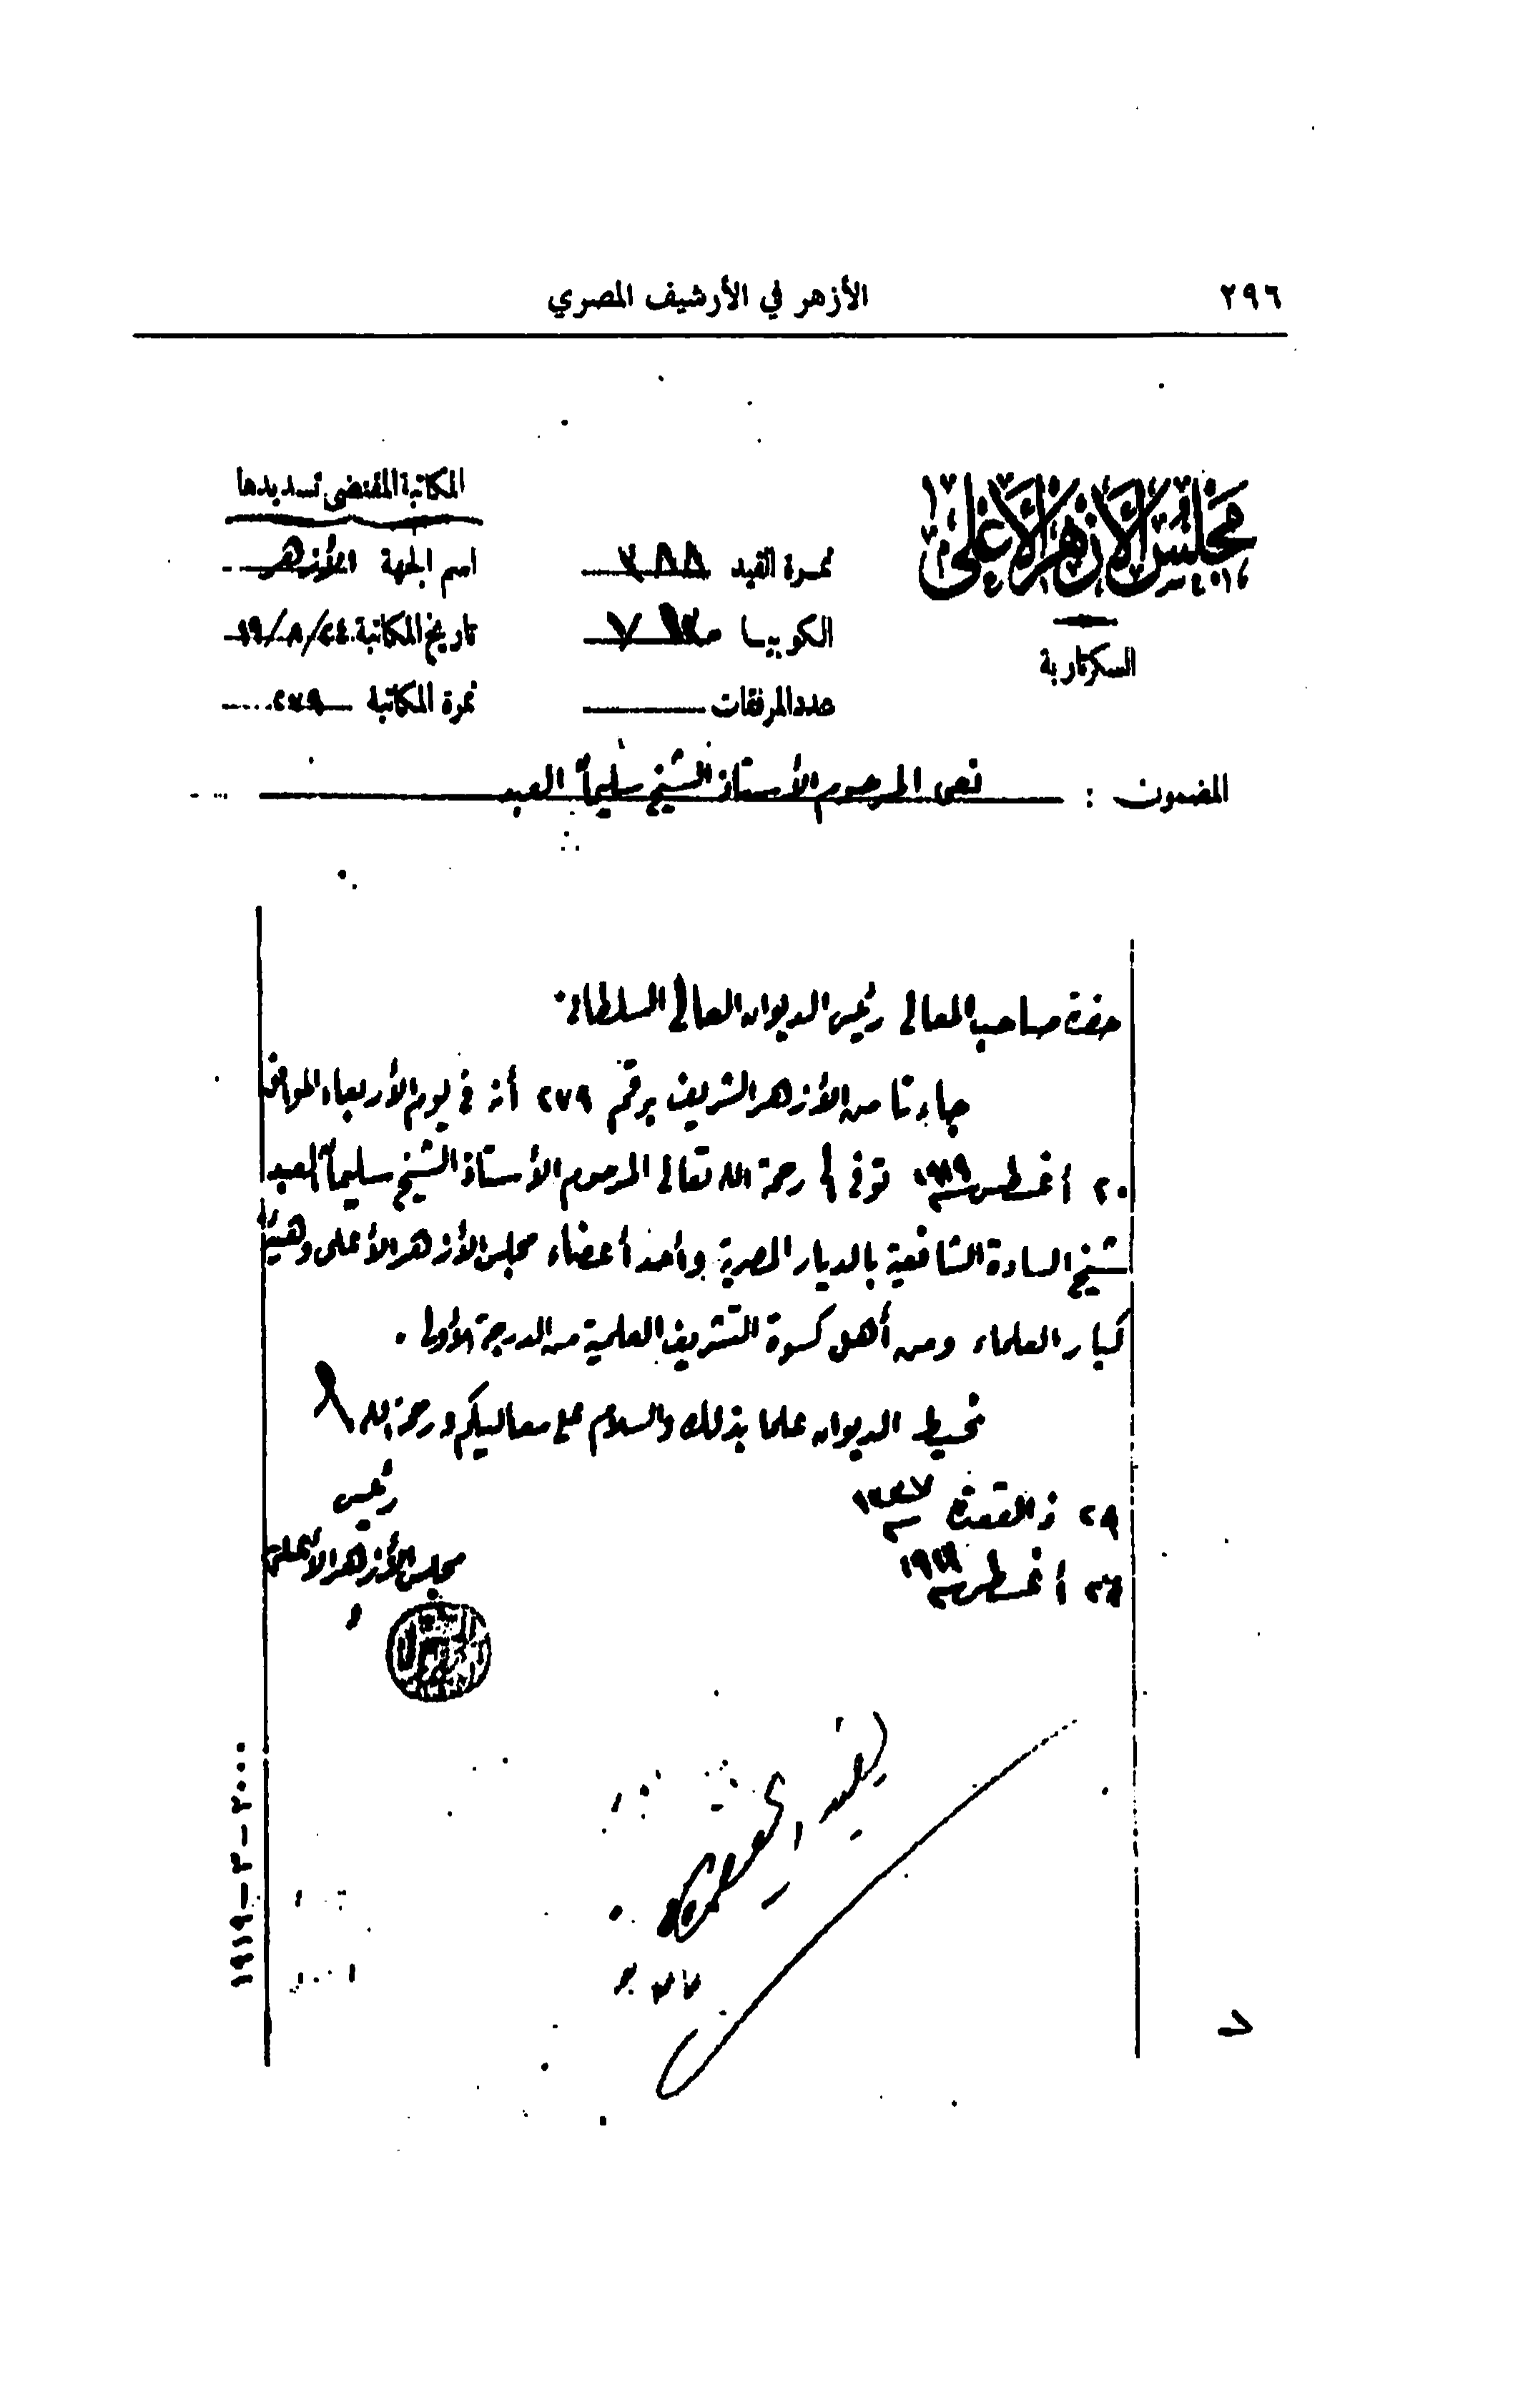 ٢٩٦
الأزهر في الأرشيف المصري
مجلس الأزهر الأعلى
السكرتارية
نمرة القيد ٧٨٨
الكوبيا
عدد المرفقات
المكاتبة المقتضى تسديدها
اسم الجهة الأزهر
تاريخ المكاتبة ٢٤/٨/١٩
نمرة المكاتبة ٢٧٩
المضمون : نعى المرحوم الأستاذ الشيخ سليمان العبد
حضرة صاحب المعالى رئيس الديوان العالى السلطانى
جاءنا من الأزهر الشريف برقم ٢٧٩ أنه فى يوم الأربعاء الموافق
٢٠ أغسطس سنة ١٩١٩ توفى إلى رحمة الله تعالى المرحوم الأستاذ الشيخ سليمان العبد
شيخ السادة الشافعية بالديار المصرية وأحد أعضاء مجلس الأزهر الأعلى وهيئة
كبار العلماء ومن أهل كسوة التشريف العلمية من الدرجة الأولى .
نحيط الديوان علما بذلك والسلام على معاليكم ورحمة الله
٢٨ ذى القعدة سنة ١٣٣٧
٢٤ أغسطس سنة ١٩١٩
رئيس
مجلس الأزهر الأعلى
١٩١٩ - ٣ - ٢٠٠٠